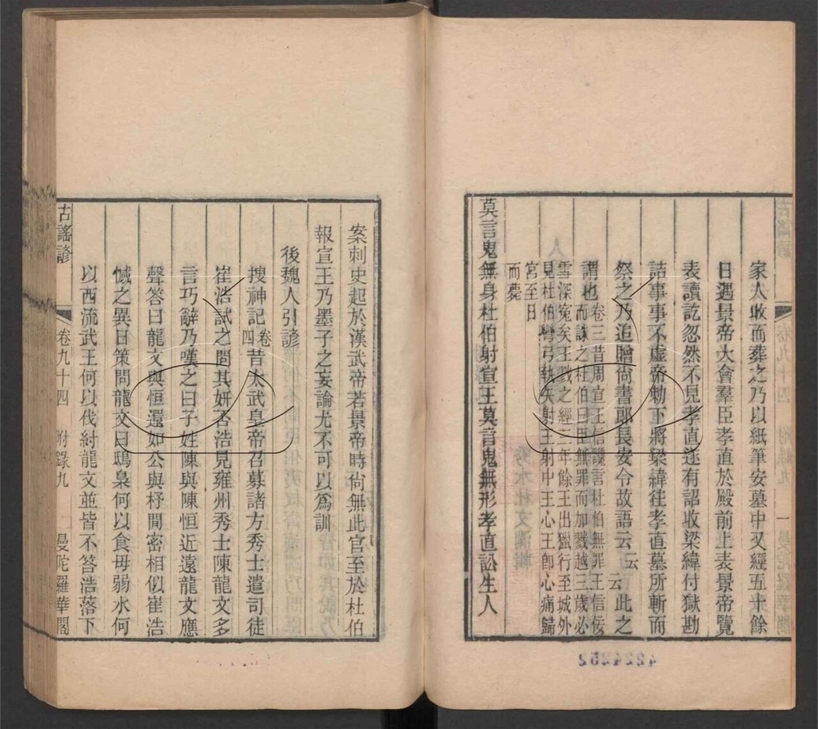 家人收而葬之乃以紙筆安墓中又經五十餘
日遇景帝大會羣臣孝直於殿前上表景帝覽
表讀訖忽然不見孝直遂有詔收梁緯付獄勘
詰事事不虛帝勅下將梁緯往孝直墓所斬而
祭之乃追贈尚書郎長安令故語云云此之
謂也卷三昔周宣王信讒言杜伯無罪王信佞
而誅之杜伯曰臣無罪而加戮越三歲必
雪深冤矣王戮之經三年餘王出獵行至城外
見杜伯彎弓執矢射王射中王心王卽心痛歸
宮至日
而薨
莫言鬼無身杜伯射宣王莫言鬼無形孝直訟生人
案刺史起於漢武帝若景帝時尚無此官至於杜伯
報宣王乃墨子之妄論尤不可以爲訓
後魏人引諺
搜神記卷四昔太武皇帝召募諸方秀士遣司徒
崔浩試之問其妍否浩見雍州秀士陳龍文多
言巧辭乃嘆之曰子姓陳與陳恒近遠龍文應
聲答曰龍文與恒還如公與杼間密相似崔浩
憾之異日策問龍文曰鴟梟何以食母弱水何
以西流武王何以伐紂龍文並皆不答浩落下
古謠諺 卷九十四 附錄九 一 曼陀羅華閣
4224252